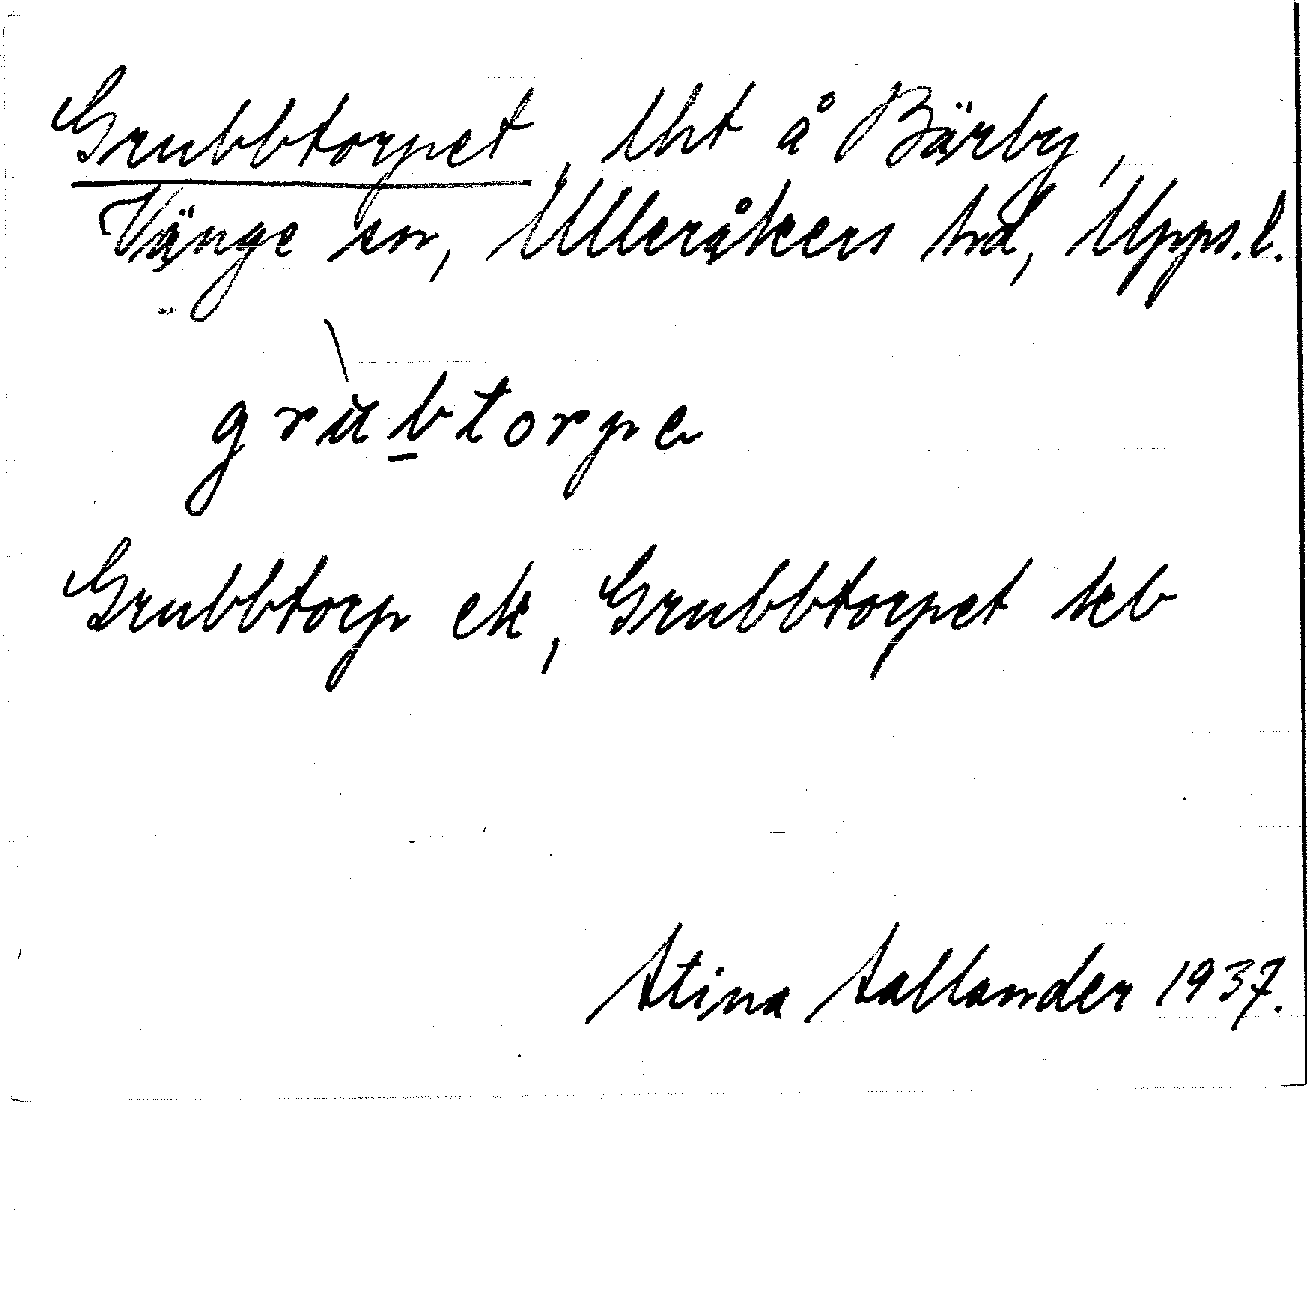 Grubbtorpet, lht å Bärby,
Vänge sn, Ulleråkers hd, Upps.l.
grùbtorpe
Grubbtorp ek, Grubbtorpet kb
Stina Sallander 1937.